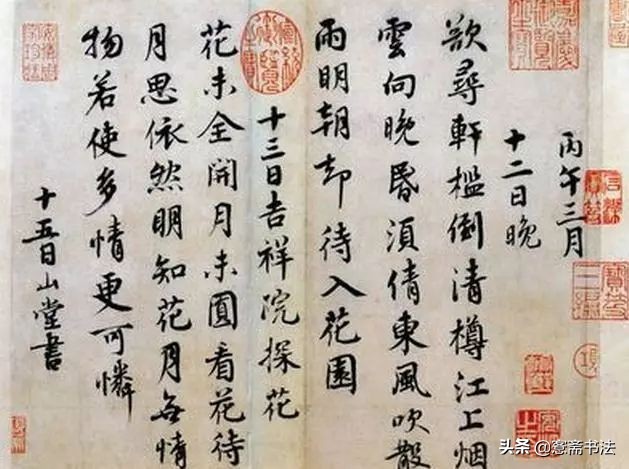 丙午三月
十二日晚
欲尋軒檻倒清樽江上烟
雲向晚昏須倩東風吹散
雨明朝却待入花園
十三日吉祥院探花
花未全開月未圓看花待
月思依然明知花月無情
物若使多情更可憐
十五日山堂書
头条@愙斋书法